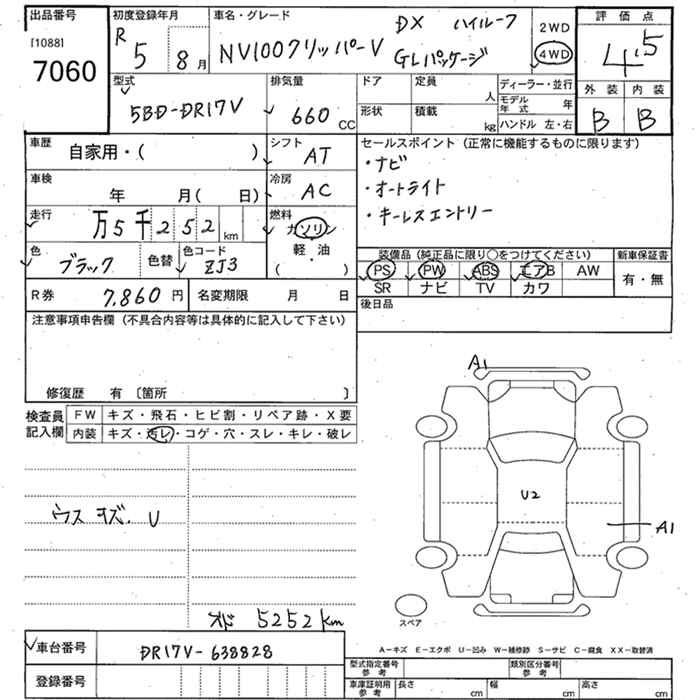 出品番号
[1088]
7060
初度登録年月
R 5 年 8 月
車名・グレード
NV100クリッパーV
DX ハイルーフ
GLパッケージ
2WD
4WD
評価点
4.5
外装 内装
B B
型式
5BD-DR17V
排気量
660 CC
ドア 定員
人
形状 積載
kg
ディーラー・並行
モデル年式 年
ハンドル 左・右
車歴
自家用・( )
シフト
AT
車検
年 月( 日)
冷房
AC
走行
万5千252 km
燃料
ガソリン
軽・油
( )
色
ブラック
色替
色コード
ZJ3
R券 7,860 円
名変期限 月 日
セールスポイント (正常に機能するものに限ります)
・ナビ
・オートライト
・キーレスエントリー
装備品 (純正品に限り○をつけてください)
PS PW ABS エアB AW
SR ナビ TV カワ
新車保証書
有・無
後日品
注意事項申告欄 (不具合内容等は具体的に記入して下さい)
修復歴 有 〔箇所 〕
検査員記入欄
FW キズ・飛石・ヒビ割・リペア跡・X要
内装 キズ・汚レ・コゲ・穴・スレ・キレ・破レ
ウスキズ.U
オド 5252km
A1
U2
A1
スペア
A-キズ E-エクボ U-凹み W-補修跡 S-サビ C-腐食 XX-取替済
車台番号 DR17V-638828
登録番号
型式指定番号 参考
類別区分番号 参考
車庫証明用 参考
長さ cm 幅 cm 高さ cm